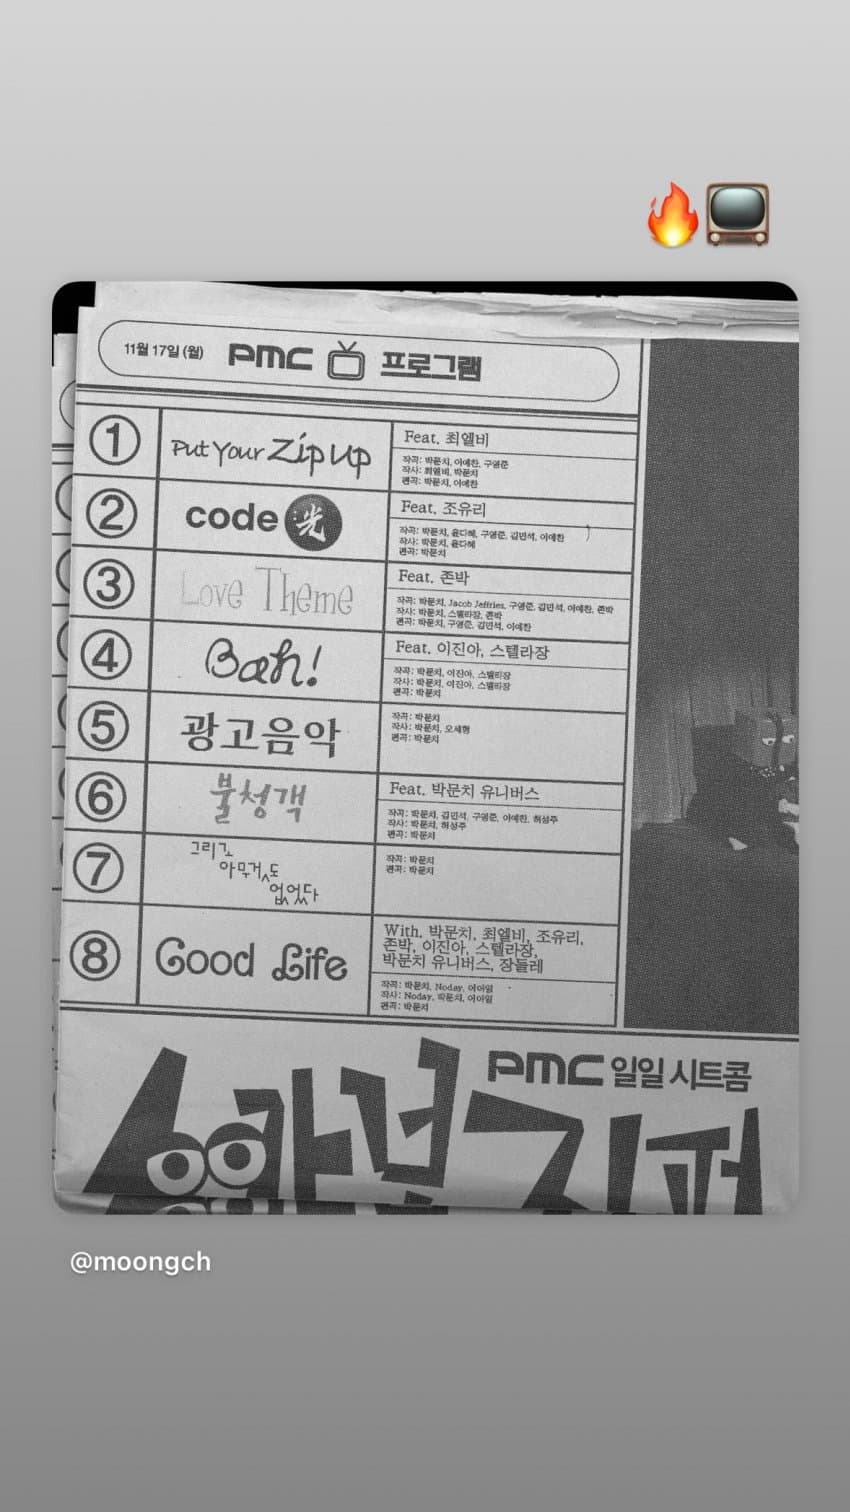 11월 17일 (월) PMC 프로그램
① Put Your Zip Up
Feat. 최엘비
작곡: 박문치, 이예찬, 구영준
작사: 최엘비, 박문치
편곡: 박문치, 이예찬
② code 光
Feat. 조유리
작곡: 박문치, 윤다혜, 구영준, 김민석, 이예찬
작사: 박문치, 윤다혜
편곡: 박문치
③ Love Theme
Feat. 존박
작곡: 박문치, Jacob Jeffries, 구영준, 김민석, 이예찬, 존박
작사: 박문치, 스텔라장, 존박
편곡: 박문치, 구영준, 김민석, 이예찬
④ Bah!
Feat. 이진아, 스텔라장
작곡: 박문치, 이진아, 스텔라장
작사: 박문치, 이진아, 스텔라장
편곡: 박문치
⑤ 광고음악
작곡: 박문치
작사: 박문치, 오세형
편곡: 박문치
⑥ 불청객
Feat. 박문치 유니버스
작곡: 박문치, 김민석, 구영준, 이예찬, 허성주
작사: 박문치, 허성주
편곡: 박문치
⑦ 그리고
아무것도
없었다
작곡: 박문치
편곡: 박문치
⑧ Good Life
With. 박문치, 최엘비, 조유리,
존박, 이진아, 스텔라장,
박문치 유니버스, 장들레
작곡: 박문치, Noday, 이아일
작사: Noday, 박문치, 이아일
편곡: 박문치
PMC 일일 시트콤
@moongch